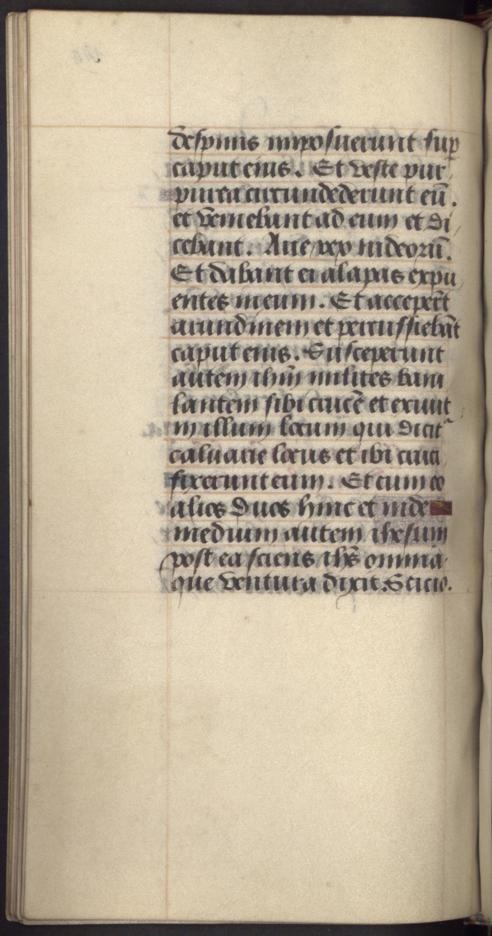 despinis imposuerunt sup
caput eius. Et veste pur
purea circundederunt eū.
et veniebant ad eum et di
cebant. Aue rex iudeorū.
Et dabant ei alapas expu
entes in eum. Et acceperūt
arundinem et percussiebāt
caput eius. Susceperunt
autem ihm̄ milites baiu
lantem sibi crucē et exiuit
in illum locum qui dicit
caluarie locus et ibi cruci
fixerunt eum. Et cum eo
alios duos hinc et inde
medium autem ihesum
post ea sciens ihs̄ omnia
que ventura dixit. Sicio.